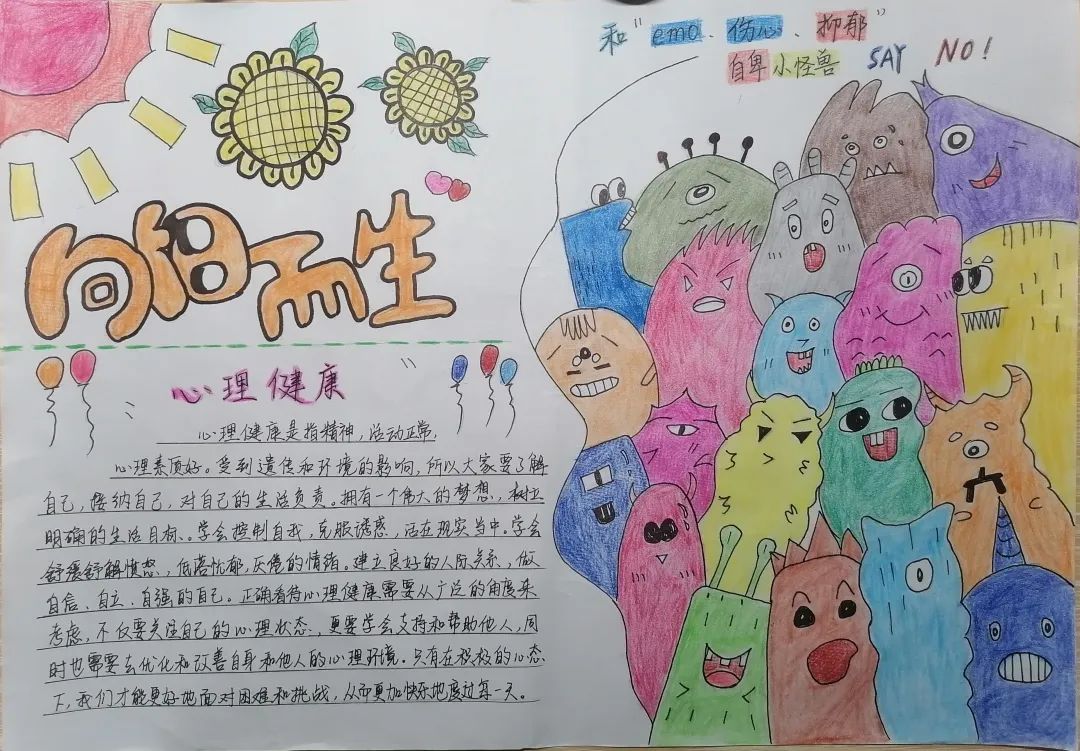 和"emo、伤心、抑郁"
自卑小怪兽 SAY NO!
向阳而生
心理健康
心理健康是指精神,活动正常,
心理素质好。受到遗传和环境的影响,所以大家要了解
自己,接纳自己,对自己的生活负责。拥有一个伟大的梦想,树立
明确的生活目标。学会控制自我,克服诱惑,活在现实当中。学会
舒缓舒解愤怒,低落忧郁,厌倦的情绪。建立良好的人际关系,做
自信、自立、自强的自己。正确看待心理健康需要从广泛的角度来
考虑,不仅要关注自己的心理状态,更要学会支持和帮助他人,同
时也需要去优化和改善自身和他人的心理环境。只有在积极的心态
下,我们才能更好地面对困难和挑战,从而更加快乐地度过每一天。